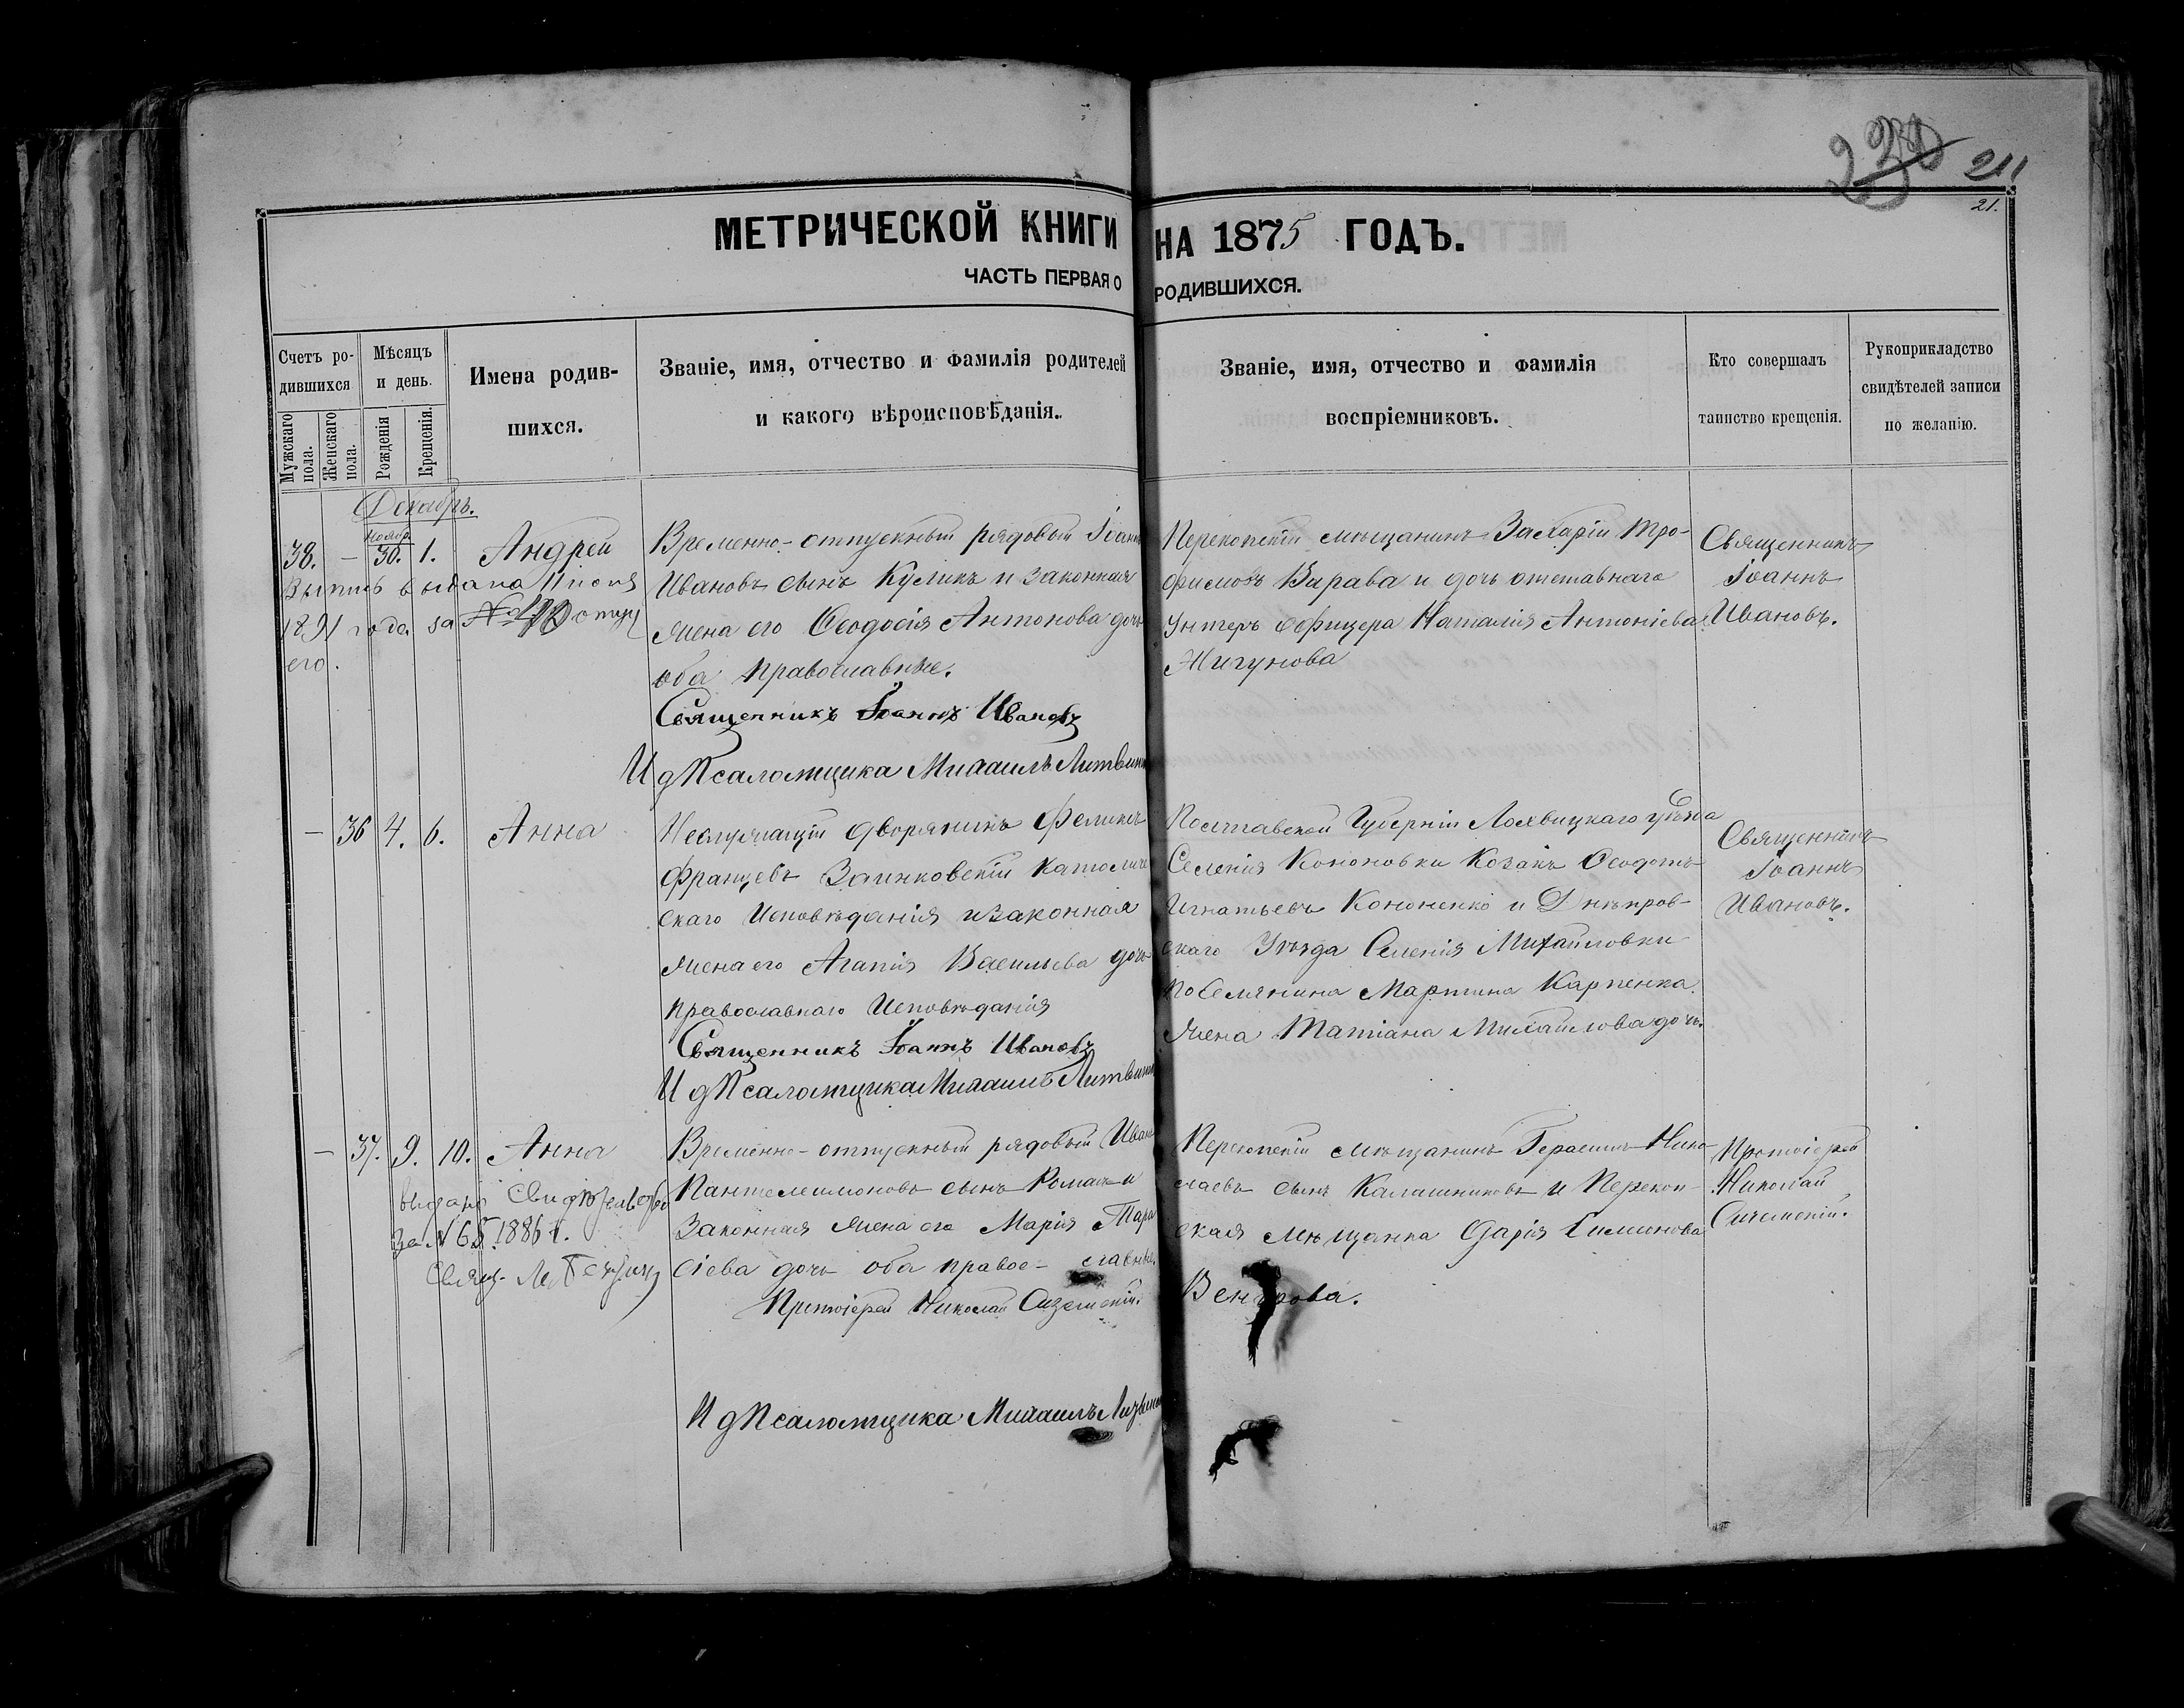 230 211
21.
МЕТРИЧЕСКОЙ КНИГИ НА 1875 ГОДЪ.
ЧАСТЬ ПЕРВАЯ О РОДИВШИХСЯ.
Счетъ ро-
дившихся
Мужскаго пола.
Женскаго пола.
Мѣсяцъ
и день.
Рожденія
Крещенія.
Имена родив-
шихся.
Званіе, имя, отчество и фамилія родителей
и какого вѣроисповѣданія.
Званіе, имя, отчество и фамилія
воспріемниковъ.
Кто совершалъ
таинство крещенія.
Рукоприкладство
свидѣтелей записи
по желанію.
Декабрь.
Ноябр.
38. — 30. 1. Андрей
Выпись выдана 11 іюня
1891 года за отцу
его.
Временно-отпускный рядовый Іоаннъ
Ивановъ сынъ Куликъ и законная
жена его Ѳеодосія Антонова дочь
оба православные.
Священникъ Іоаннъ Ивановъ
И д Псаломщика Михаилъ
Перекопскій мѣщанинъ Захарій Тро-
фимовъ Варава и дочь отставнаго
унтеръ офицера Наталія Антоніева
Жигунова
Священникъ
Іоаннъ
Ивановъ.
— 36 4. 6. Анна
Неслужащій дворянинъ Феликсъ
Францевъ Заинковскій Католиче
скаго Исповѣданія и законная
жена его Агапія Васильева дочь
православнаго Исповѣданія
Священникъ Іоаннъ Ивановъ
И д Псаломщика Михаилъ
Полтавской Губерніи Лохвицкаго уѣзда
Селенія Кононовки Козакъ Ѳеодотъ
Игнатьевъ Кононенко и Днѣпров-
скаго Уѣзда Селенія Михайловки
поселянина Мартина Карпенка
жена Татіана Михайлова дочь.
Священникъ
Іоаннъ
Ивановъ.
— 37. 9. 10. Анна
выдано Свидѣтельство
за № 65 1886 г.
Свящ.
Временно-отпускный рядовый Иванъ
Пантелеимоновъ сынъ и
Законная жена его Марія Тара
сіева дочь оба правос- славные
Протоіерей Николай
И д Псаломщика Михаилъ
Перекопскій мѣщанинъ Герасимъ Нико-
лаевъ сынъ Калашниковъ и Перекоп-
ская мѣщанка Дарія Симонова
Протоіерей
Николай